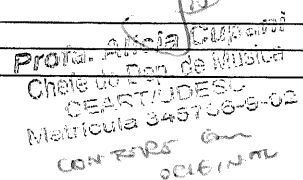 Profa. Alicia Cupani
Chefe do Dep. de Música
CEART/UDESC
Matrícula 345706-8-02
CONFERE